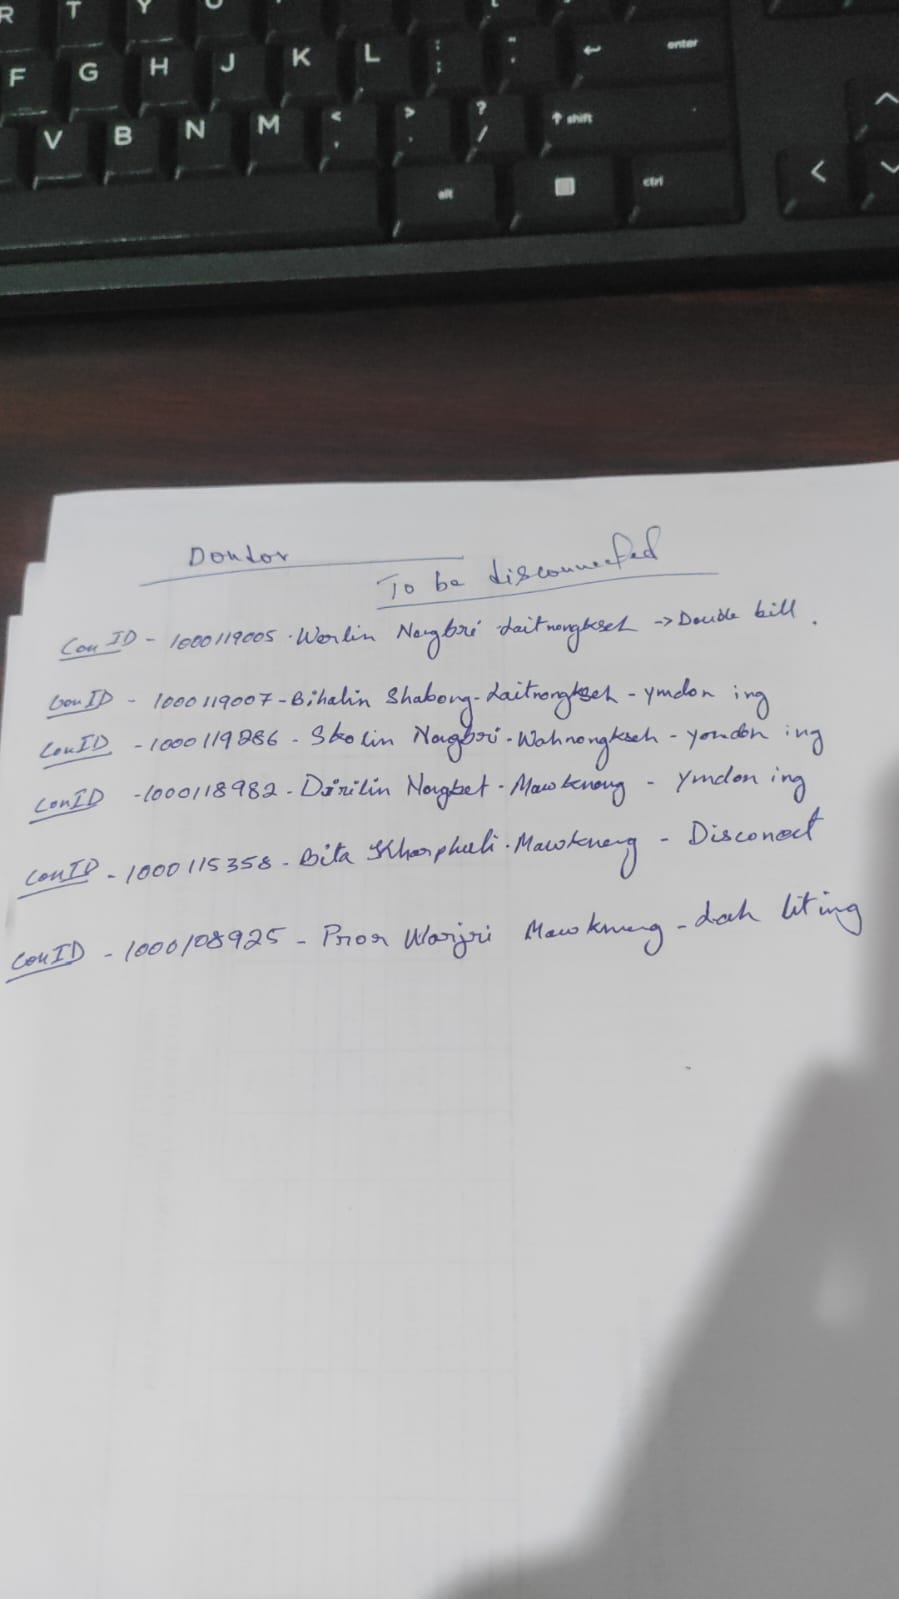 R T Y U
F G H J K L : ; " ' enter
V B N M < , > . ? / shift
alt ctrl
Dondor
To be disconnected
Con ID - 1000119005 . Werlin Nongbri Laitnongkseh -> Double bill .
Con ID - 1000119007 - Bihalin Shabong - Laitnongkseh - ymdon ing
Con ID - 1000119286 - Skolin Nongbri - Wahnongkseh - ymdon ing
Con ID - 1000118982 - Dirilin Nongbet . Mawkneng - ymdon ing
Con ID - 1000115358 - Bita . Mawkneng - Disconect
Con ID - 1000108925 - Warjri Mawkneng - Lah lit ing